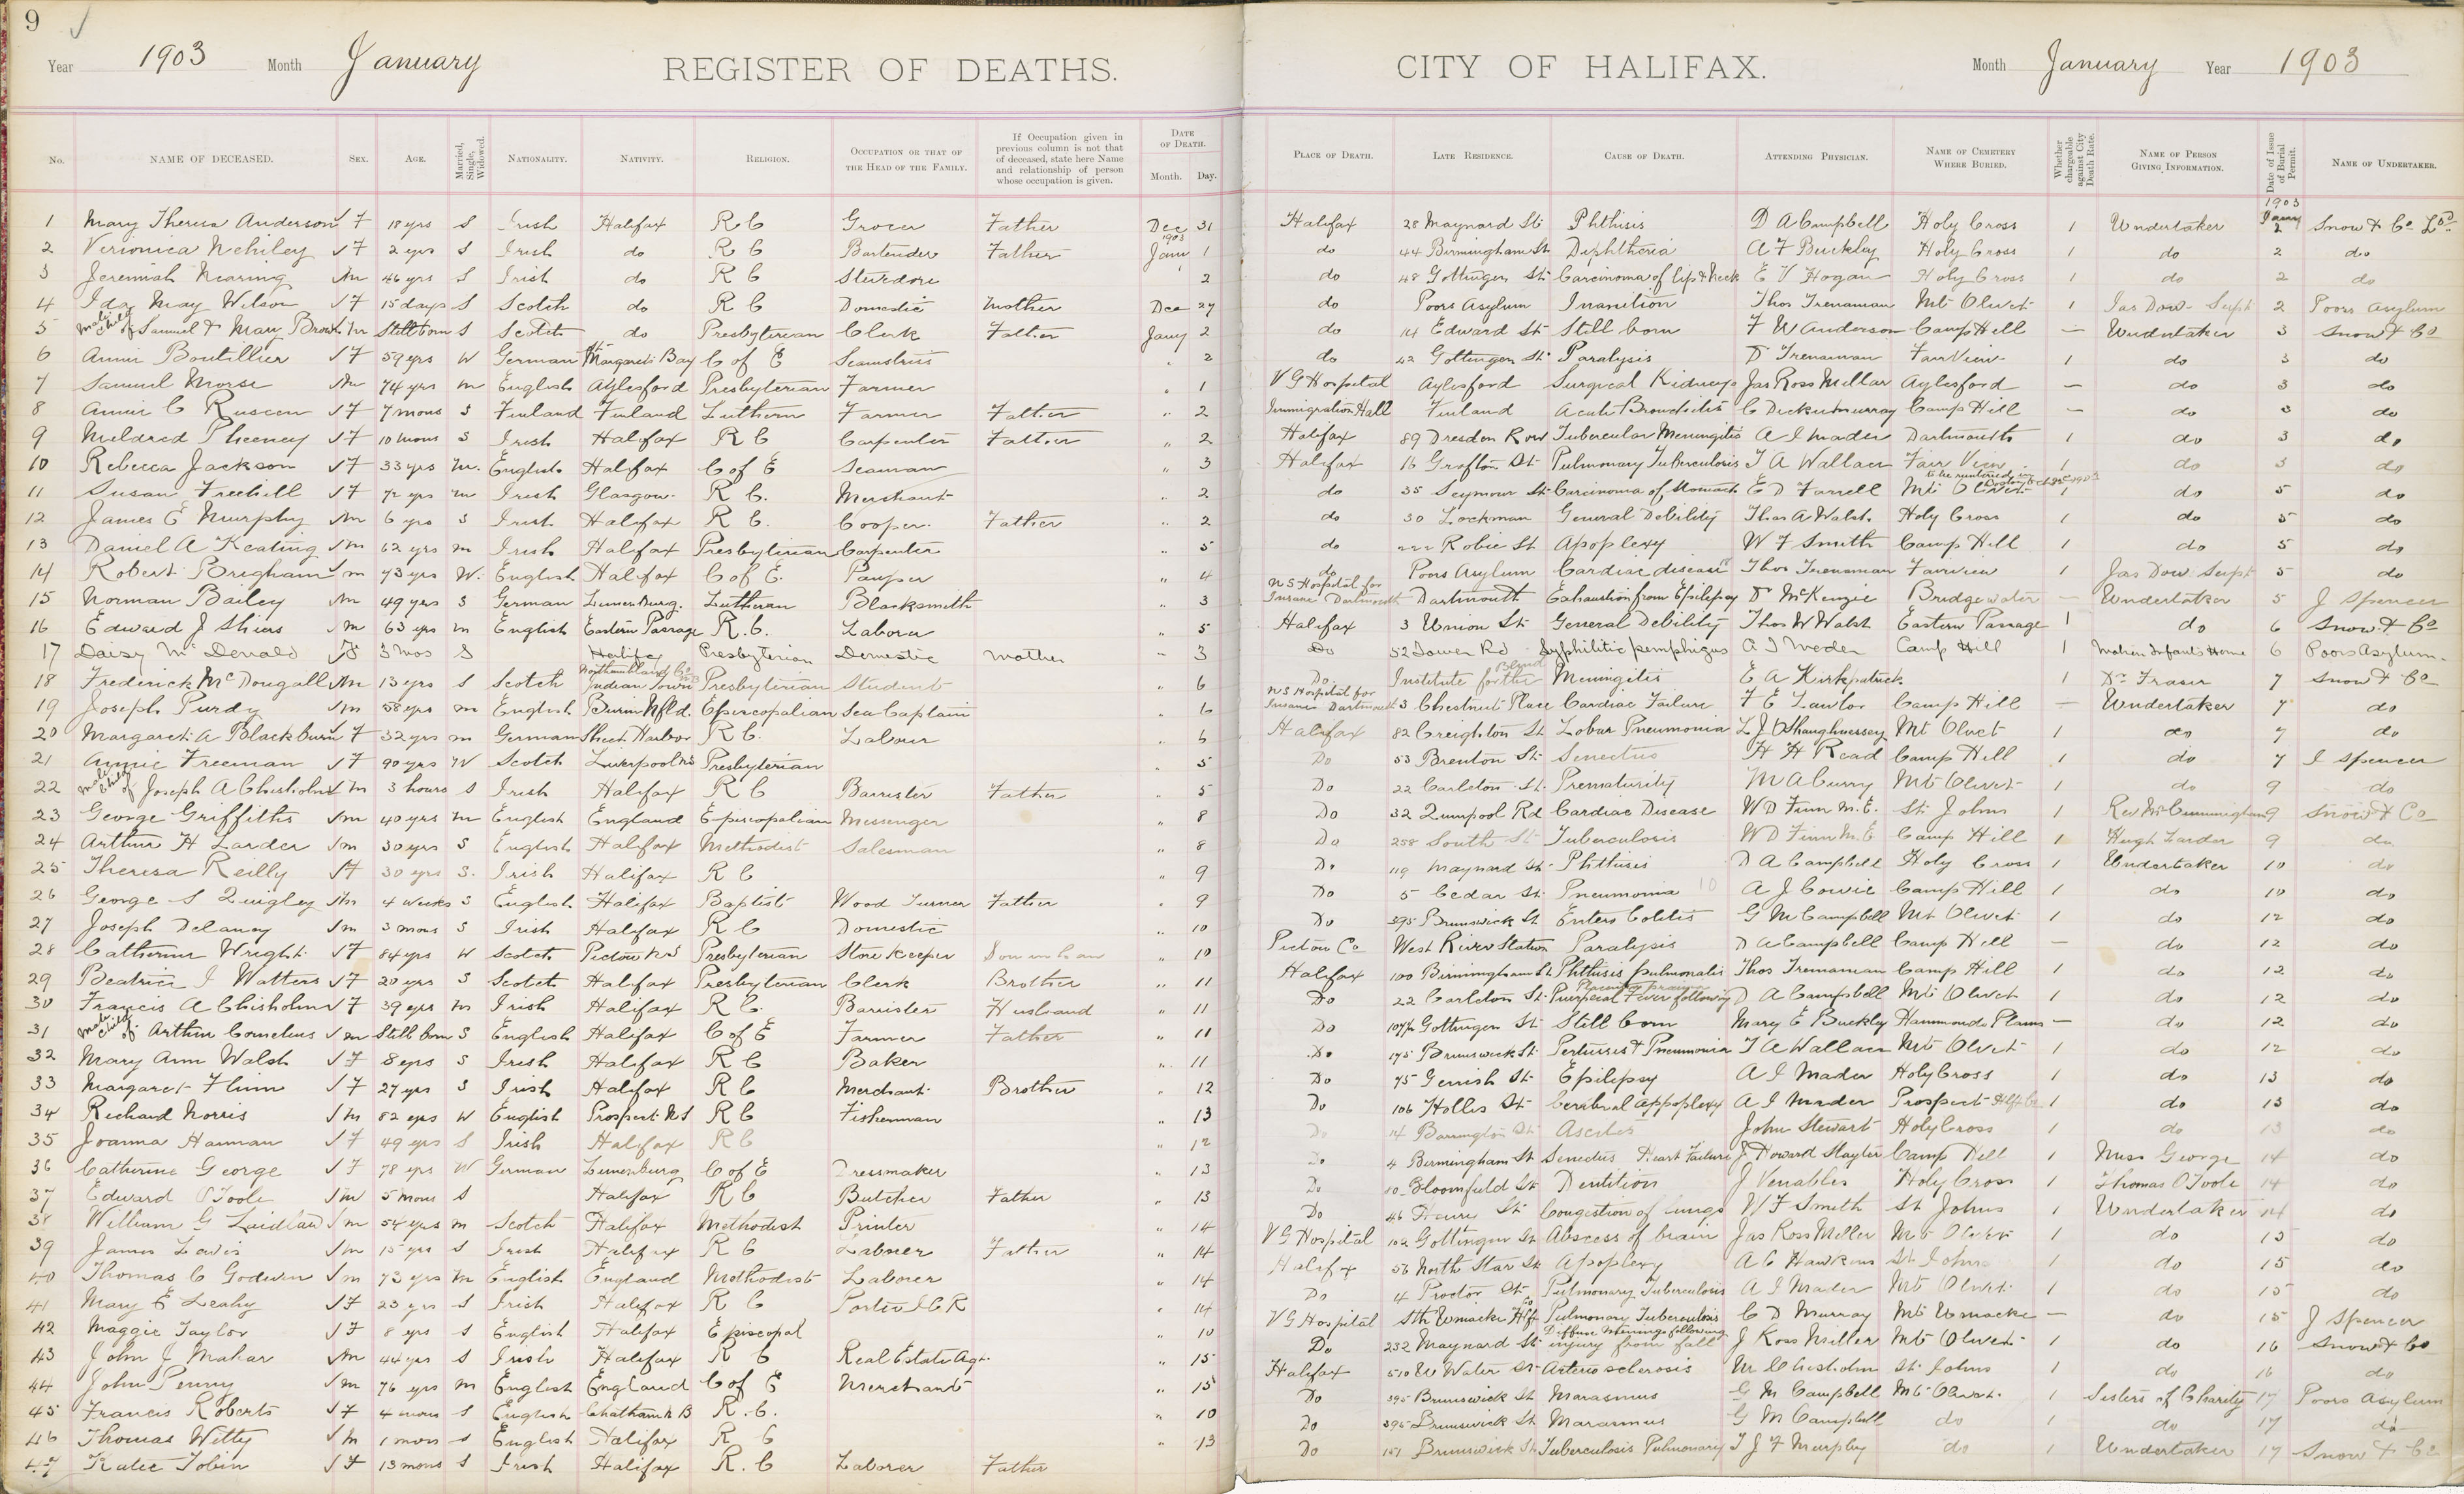 9
Year 1903 Month January REGISTER OF DEATHS. CITY OF HALIFAX. Month January Year 1903
No. NAME OF DECEASED. SEX. AGE. Married, Single, Widowed. NATIONALITY. NATIVITY. RELIGION. OCCUPATION OR THAT OF THE HEAD OF THE FAMILY. If Occupation given in previous column is not that of deceased, state here Name and relationship of person whose occupation is given. DATE OF DEATH. Month. Day. PLACE OF DEATH. LATE RESIDENCE. CAUSE OF DEATH. ATTENDING PHYSICIAN. NAME OF CEMETERY WHERE BURIED. Whether chargeable against City Death Rate. NAME OF PERSON GIVING INFORMATION. Date of Issue of Burial Permit. NAME OF UNDERTAKER.
1 Mary Theresa Anderson F 18 yrs S Irish Halifax R C Grocer Father Dec 31 Halifax 28 Maynard St Phthisis D A Campbell Holy Cross 1 Undertaker 1903 Jany 2 Snow & Co Ltd
2 Veronica Nehiley F 2 yrs S Irish do R C Bartender Father 1903 Jany 1 do 44 Birmingham St Diphtheria A F Buckley Holy Cross 1 do 2 do
3 Jeremiah Nearing m 46 yrs S Irish do R C Stevedore 2 do 48 Gottingen St Carcinoma of lip & neck E V Hogan Holy Cross 1 do 2 do
4 Ida May Wilson F 15 days S Scotch do R C Domestic Mother Dec 27 do Poors Asylum Inanition Thos Trenaman Mt Olivet 1 Jas Dow Supt 2 Poors Asylum
5 male child of Samuel & Mary Brown m Still born S Scotch do Presbyterian Clerk Father Jany 2 do 14 Edward St Still born F W Anderson Camp Hill — Undertaker 3 Snow & Co
6 Annie Boutillier F 59 yrs W German St Margarets Bay C of E Seamstress 2 do 42 Gottingen St Paralysis T Trenaman Fair View 1 do 3 do
7 Samuel Morse m 74 yrs m English Aylesford Presbyterian Farmer " 1 V G Hospital Aylesford Surgical Kidneys Jas Ross Millar Aylesford — do 3 do
8 Annie C F 7 mons S Finland Finland Luthern Farmer Father " 2 Immigration Hall Finland Acute Bronchitis C Dickie Murray Camp Hill — do 3 do
9 Mildred Pheeney F 10 mons S Irish Halifax R C Carpenter Father " 2 Halifax 89 Dresden Row Tubercular Meningitis A I Mader Dartmouth 1 do 3 do
10 Rebecca Jackson F 33 yrs m. English Halifax C of E Seaman " 3 Halifax 16 Grafton St Pulmonary Tuberculosis T A Wallace Fair View 1 do 3 do
11 Susan Freehill F 72 yrs m Irish Glasgow R C. Merchant " 2 do 35 Seymour St Carcinoma of Stomach E D Farrell Mt Olivet 1 do 5 do
12 James E Murphy m 6 yrs S Irish Halifax R C. Cooper Father " 2 do 30 Lockman General Debility Thos A Walsh Holy Cross 1 do 5 do
13 Daniel A Keating m 62 yrs m Irish Halifax Presbyterian Carpenter " 5 do 222 Robie St Apoplexy W F Smith Camp Hill 1 do 5 do
14 Robert Brigham m 73 yrs W. English Halifax C of E. Pauper " 4 do Poors Asylum Cardiac disease Thos Trenaman Fairview 1 Jas Dow Supt 5 do
15 Norman Bailey m 49 yrs S German Lunenburg. Lutheran Blacksmith " 3 N S Hospital for Insane Dartmouth Dartmouth Exhaustion from Epilepsy D McKenzie Bridgewater — Undertaker 5 J Spencer
16 Edward J Shiers m 63 yrs m English Eastern Passage R.C. Laborer " 5 Halifax 3 Union St General Debility Thos W Walsh Eastern Passage 1 do 6 Snow & Co
17 Daisy McDonald F 3 mos S Halifax Presbyterian Domestic Mother " 3 Do 52 Tower Rd Syphilitic pemphigus A I Mader Camp Hill 1 Matron Infants Home 6 Poors Asylum
18 Frederick McDougall m 13 yrs S Scotch Northumberland Co Indian Town NB Presbyterian Student " 6 Do Institute for the Blind Meningitis E A Kirkpatrick 1 Dr Fraser 7 Snow & Co
19 Joseph Purdy m 58 yrs m English Burin Nfld. Episcopalian Sea Captain " 6 N S Hospital for Insane Dartmouth 3 Chestnut Place Cardiac Failure F E Lawlor Camp Hill — Undertaker 7 do
20 Margaret A Blackburn F 32 yrs m German Sheet Harbor R C. Labour " 6 Halifax 82 Creighton St Lobar Pneumonia L J OShaughnessey Mt Olivet 1 do 7 do
21 Annie Freeman F 90 yrs W Scotch Liverpool NS Presbyterian " 5 Do 53 Brenton St Senectus H H Read Camp Hill 1 do 7 J Spencer
22 male child of Joseph A Chisholm m 3 hours S Irish Halifax R C Barrister Father " 5 Do 22 Carleton St. Prematurity M A Curry Mt Olivet 1 do 9 do
23 George Griffiths m 40 yrs m English England Episcopalian Messenger " 8 Do 32 Quinpool Rd Cardiac Disease W D Finn M.E. St Johns 1 Rev Mr Cunningham 9 Snow & Co
24 Arthur H Larder m 30 yrs S English Halifax Methodist Salesman " 8 Do 258 South St Tuberculosis W D Finn M.E Camp Hill 1 Hugh Larder 9 do
25 Theresa Reilly F 30 yrs S. Irish Halifax R C " 9 Do 119 Maynard St Phthisis D A Campbell Holy Cross 1 Undertaker 10 do
26 George S Quigley m 4 weeks S English Halifax Baptist Wood Turner Father " 9 Do 5 Cedar St Pneumonia A J Cowie Camp Hill 1 do 10 do
27 Joseph Delaney m 3 mons S Irish Halifax R C Domestic " 10 Do 395 Brunswick St Entero Colitis G M Campbell Mt Olivet 1 do 12 do
28 Catherine Wright F 84 yrs W Scotch Pictou NS Presbyterian Store Keeper " 10 Pictou Co West River Station Paralysis D A Campbell Camp Hill — do 12 do
29 Beatrice J Watters F 20 yrs S Scotch Halifax Presbyterian Clerk Brother " 11 Halifax 100 Birmingham St Phthisis pulmonalis Thos Trenaman Camp Hill 1 do 12 do
30 Francis A Chisholm F 39 yrs m Irish Halifax R C. Barrister Husband " 11 Do 22 Carleton St Puerperal Fever following Placenta praevia D A Campbell Mt Olivet 1 do 12 do
31 male child of Arthur Cornelius m Still born S English Halifax C of E Farmer Father " 11 Do Gottingen St Still born Mary E Buckley Hammonds Plains — do 12 do
32 Mary Ann Walsh F 8 yrs S Irish Halifax R C Baker " 11 Do 175 Brunswick St Pertussis & Pneumonia T A Wallace Mt Olivet 1 do 12 do
33 Margaret Flinn F 27 yrs S Irish Halifax R C Merchant Brother " 12 Do 75 Gerrish St Epilepsy A I Mader Holy Cross 1 do 13 do
34 Richard Norris m 82 yrs W English Prospect NS R C Fisherman " 13 Do 106 Hollis St Cerebral appoplexy A I Mader Prospect Hfx Co 1 do 13 do
35 Joanna Hannan F 49 yrs S Irish Halifax R C " 12 Do 14 Barrington St Ascites John Stewart Holy Cross 1 do 13 do
36 Catherine George F 78 yrs W German Lunenburg C of E Dressmaker " 13 Do 4 Birmingham St Senectus Heart Failure J Howard Slayter Camp Hill 1 Miss George 14 do
37 Edward OToole m 5 mons S Halifax R C Butcher Father " 13 Do 80 Bloomfield St Dentition J Venables Holy Cross 1 Thomas OToole 14 do
38 William G Laidlaw m 54 yrs m Scotch Halifax Methodist Printer " 14 Do 46 Henry St Congestion of lungs W F Smith St Johns 1 Undertaker 14 do
39 James Lewis m 15 yrs S Irish Halifax R C Laborer Father " 14 V G Hospital 102 Gottingen St Abscess of brain Jas Ross Miller Mt Olivet 1 do 15 do
40 Thomas C Godwin m 73 yrs m English England Methodist Laborer " 14 Halifax 56 North Star St Apoplexy A C Hawkins St Johns 1 do 15 do
41 Mary E Leahy F 23 yrs S Irish Halifax R C Porter I C R " 14 Do 4 Proctor St Pulmonary Tuberculosis A I Mader Mt Olivet 1 do 15 do
42 Maggie Taylor F 8 yrs S English Halifax Episcopal " 10 V G Hospital Sth Uniacke Hfx Co Pulmonary Tuberculosis C D Murray Mt Uniacke — do 15 J Spencer
43 John J Mahar m 44 yrs S Irish Halifax R C Real Estate Agt. " 15 Do 232 Maynard St Diffuse Meningt following injury from fall J Ross Miller Mt Olivet 1 do 16 Snow & Co
44 John Penny m 76 yrs m English England C of E Merchant " 15 Halifax 510 U Water St Arterio sclerosis M Chisholm St Johns 1 do 16 do
45 Francis Roberts F 4 mons S English Chatham N B R.C. " 10 Do 395 Brunswick St Marasmus G M Campbell Mt Olivet 1 Sisters of Charity 17 Poors Asylum
46 Thomas Witty m 1 mon S English Halifax R C " 13 Do 395 Brunswick St Marasmus G M Campbell do 1 do 17 do
47 Katie Tobin F 13 mons S Irish Halifax R.C Laborer Father Do 151 Brunswick St Tuberculosis Pulmonary T J F Murphy do 1 Undertaker 17 Snow & Co